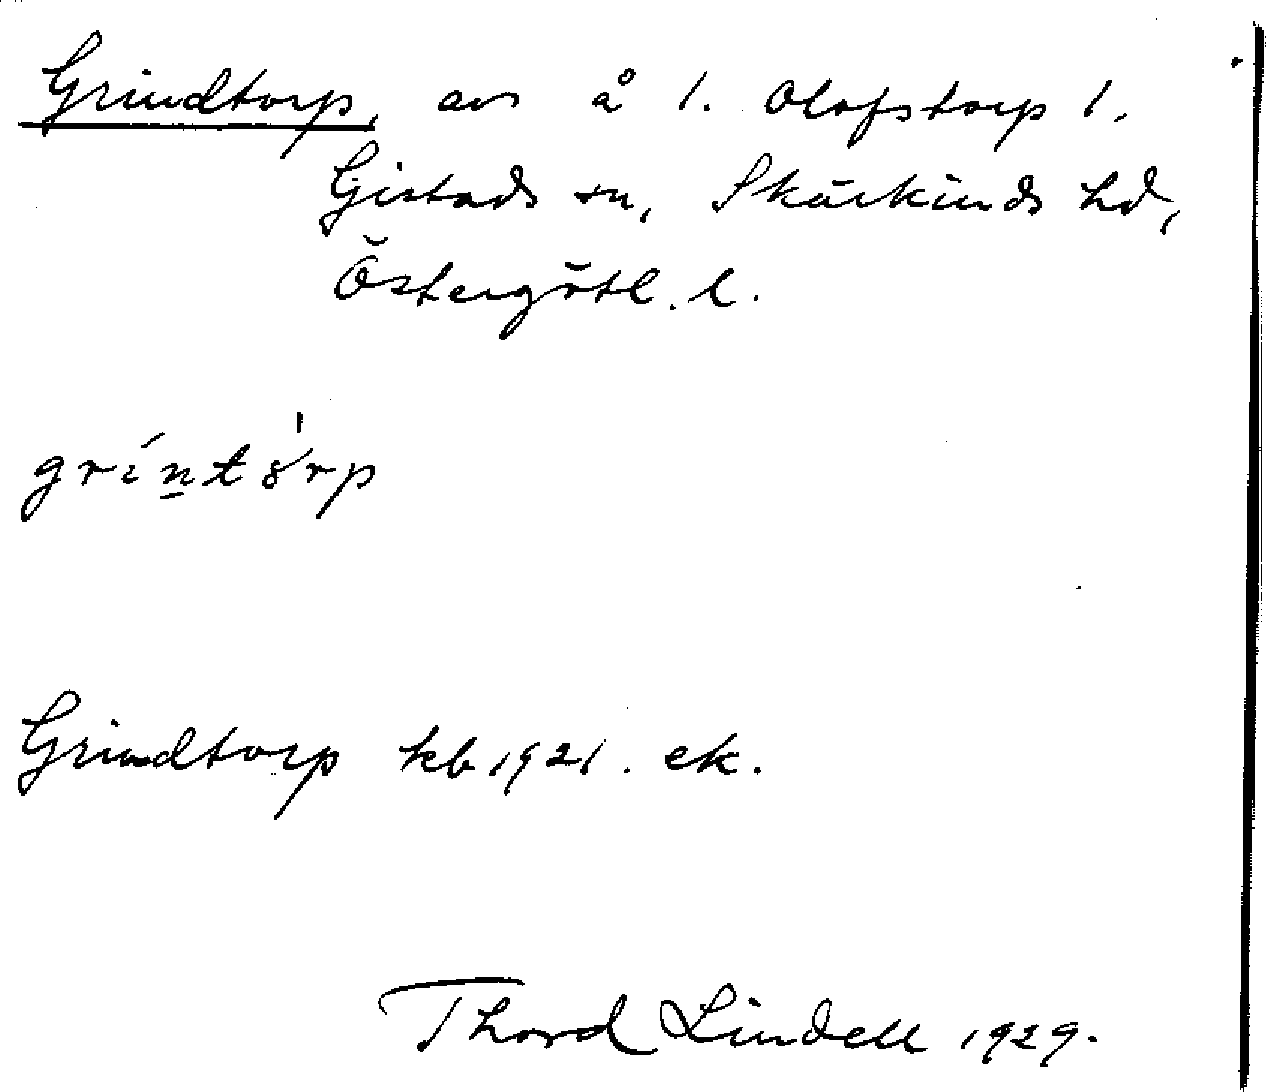 Grindtorp, avs å 1. Olofstorp 1.
Gistads sn, Skärkinds hd,
Östergötl. l.
gríṉtǒ́rp
Grindtorp kb 1921. ek.
Thord Lindell 1929.